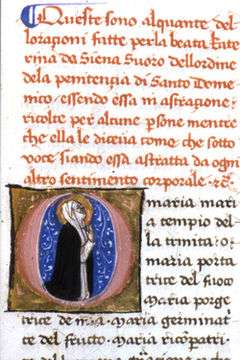 Queste sono alquante del
lorationi fatte per la beata Kate
rina da Siena Suoro dellordine
dela penitencia di Santo Dome
nico essendo essa in astratione:
ricolte per altune psone mentre
che ella le diceua come che sotto
voce siando essa astratta da ogni
altro sentimento corporale. &c.
maria mari
a tempio del
la trinita: o
maria porta
trice del fuoco
Maria porge
trice de mia. maria germinat
ce del fructo. Maria ricõpatri